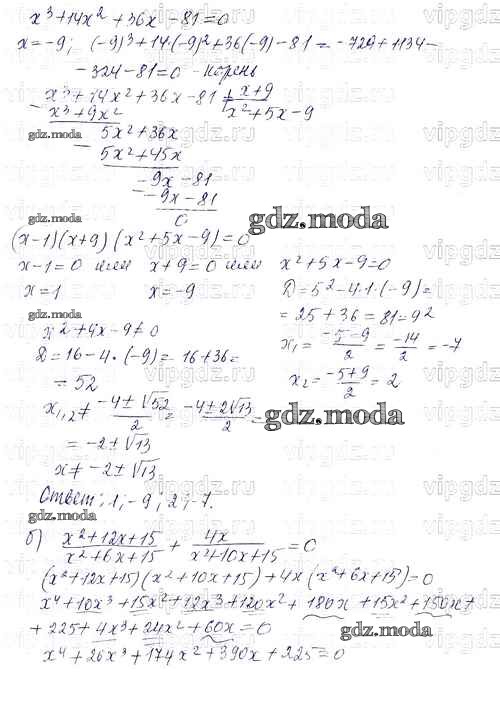 x³+14x²+36x-81=0
x=-9; (-9)³+14·(-9)²+36(-9)-81=-729+1134-
-324-81=0 - корень
x³+14x²+36x-81 | x+9
x³+9x² x²+5x-9
gdz.moda 5x²+36x
5x²+45x
-9x-81
-9x-81
gdz.moda 0
gdz.moda
(x-1)(x+9)(x²+5x-9)=0
x-1=0 или x+9=0 или x²+5x-9=0
x=1 x=-9 D=5²-4·1·(-9)=
gdz.moda = 25+36=81=9²
x²+4x-9≠0 x₁=(-5-9)/2=-14/2=-7
D=16-4·(-9)=16+36= x₂=(-5+9)/2=2
=52
x₁,₂≠(-4±√52)/2=(-4±2√13)/2= gdz.moda
=-2±√13
x≠-2±√13
Ответ: 1; -9; 2; -7.
gdz.moda
б) (x²+12x+15)/(x²+6x+15) + 4x/(x²+10x+15)=0
(x²+12x+15)(x²+10x+15)+4x(x²+6x+15)=0
x⁴+10x³+15x²+12x³+120x²+180x+15x²+150x+
+225+4x³+24x²+60x=0 gdz.moda
x⁴+26x³+174x²+390x+225=0
gdz.moda
vipgdz.ru